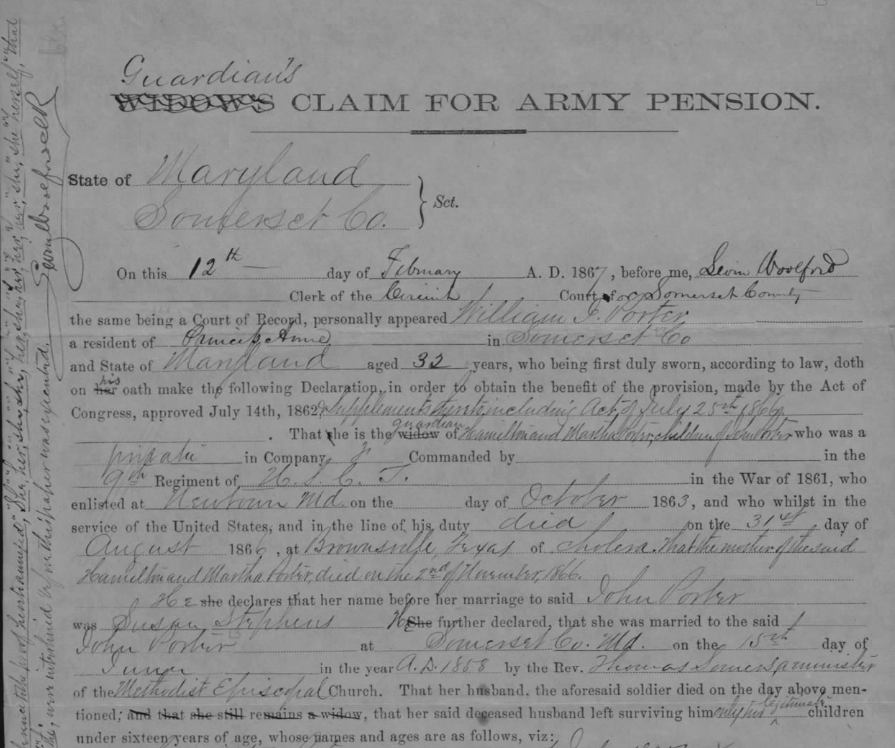 Guardian's
WIDOW'S CLAIM FOR ARMY PENSION.
State of Maryland
Somerset Co. } Sct.
On this 12th day of February A. D. 1867, before me, Levin Woolford
Clerk of the Circuit Court for Somerset County
the same being a Court of Record, personally appeared William J. Porter
a resident of Princess Anne in Somerset Co
and State of Maryland aged 32 years, who being first duly sworn, according to law, doth
on her his oath make the following Declaration, in order to obtain the benefit of the provision, made by the Act of
Congress, approved July 14th, 1862, & Supplements thereto including Act of July 25th 1866
. That she is the widow guardian of Hamilton and Martha Porter, children of John Porter who was a
private in Company Commanded by in the
9th Regiment of U. S. C. T. in the War of 1861, who
enlisted at Newtown Md on the day of October 1863, and who whilst in the
service of the United States, and in the line of his duty died on the 31st day of
August 1866, at Brownsville, Texas of cholera. That the mother of the said
Hamilton and Martha Porter, died on the 2nd of November, 1866.
He she declares that her name before her marriage to said John Porter
was Susan Stephens He She further declared, that she was married to the said
John Porter at Somerset Co. Md. on the 15th day of
June in the year A.D. 1858 by the Rev. Thomas Somers a minister
of the Methodist Episcopal Church. That her husband, the aforesaid soldier died on the day above men-
tioned; and that she still remains a widow, that her said deceased husband left surviving him only two legitimate children
under sixteen years of age, whose names and ages are as follows, viz: